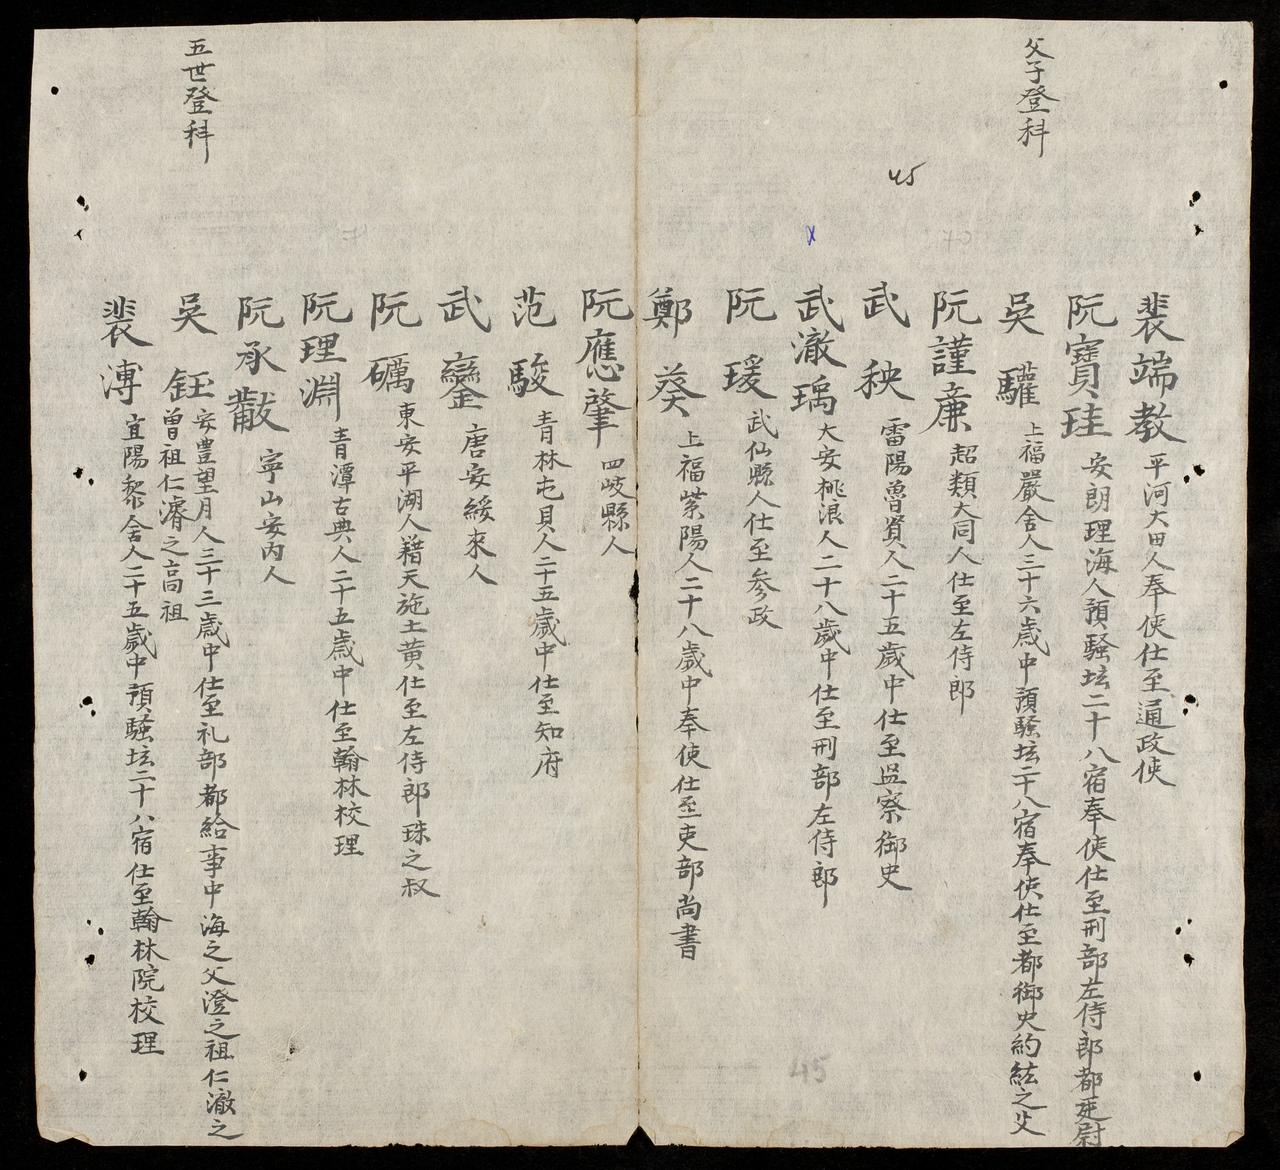 父子登科
45
裴端教 平河大田人奉使仕至通政使
阮寶珪 安朗理海人預騷坛二十八宿奉使仕至刑部左侍郎都廷尉
吳驩 上福嚴舍人三十六歳中預騷坛二十八宿奉使仕至都御史約紘之父
阮謹廉 超類大同人仕至左侍郎
武秧 雷陽曾資人二十五歳中仕至监察御史
武澈瑀 大安桃浪人二十八歳中仕至刑部左侍郎
阮瑗 武仙縣人仕至參政
鄭葵 上福紫陽人二十八歳中奉使仕至吏部尚書
阮應肇 四岐縣人
范駿 青林屯貝人二十五歳中仕至知府
武鑾 唐安綏來人
阮礪 東安平湖人籍天施土黄仕至左侍郎珠之叔
阮理淵 青潭古典人二十五歳中仕至翰林校理
阮承 寧山安内人
五世登科
吳鈺 安豊望月人三十三歳中仕至礼部都給事中海之父澄之祖仁澈之
曽祖仁濬之高祖
裴溥 宜陽黎舍人二十五歳中預騷坛二十八宿仕至翰林院校理
45